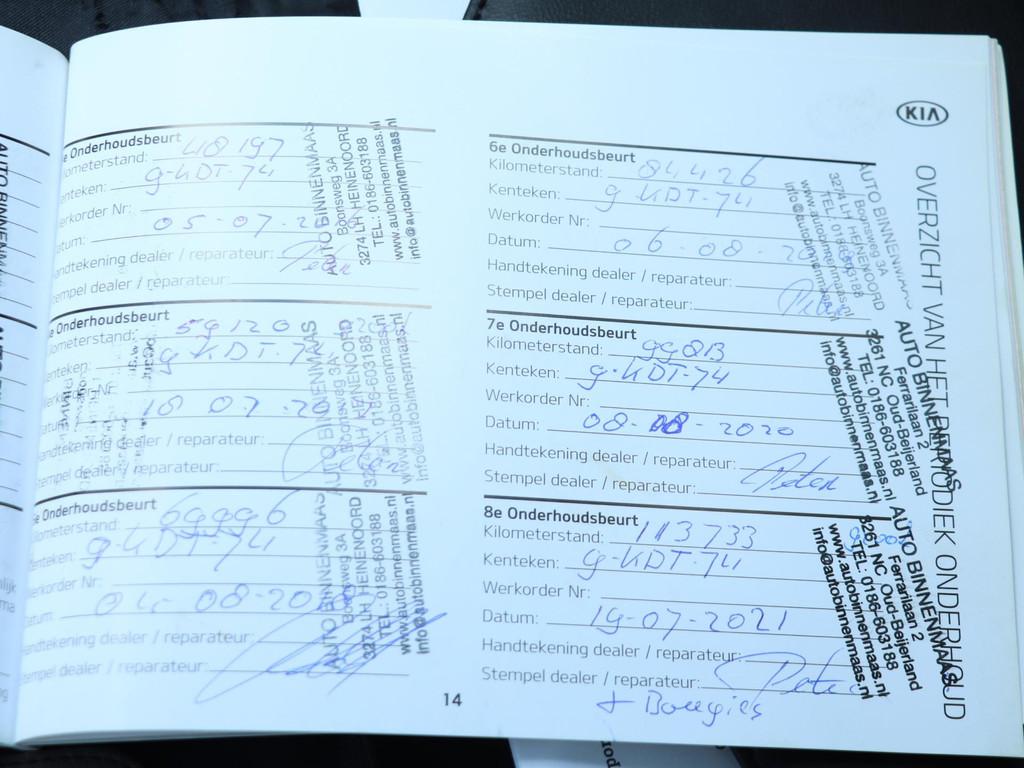 KIA
OVERZICHT VAN HET PERIODIEK ONDERHOUD
e Onderhoudsbeurt
ilometerstand: 48197
enteken: g-KDT-74
erkorder Nr:
atum: 05-07-20
andtekening dealer / reparateur: Peter
tempel dealer / reparateur:
AUTO BINNENMAAS
Boonsweg 3A
3274 LH HEINENOORD
TEL.: 0186-603188
www.autobinnenmaas.nl
info@autobinnenmaas.nl
e Onderhoudsbeurt
ilometerstand: 59120
enteken: g-KDT-7
erkorder Nr:
atum: 18 07-20
andtekening dealer / reparateur:
tempel dealer / reparateur:
AUTO BINNENMAAS
Boonsweg 3A
3274 LH HEINENOORD
TEL.: 0186-603188
www.autobinnenmaas.nl
info@autobinnenmaas.nl
e Onderhoudsbeurt
ilometerstand: 69996
enteken: g-KDT-74
erkorder Nr:
atum: 08-20
andtekening dealer / reparateur:
tempel dealer / reparateur:
AUTO BINNENMAAS
Boonsweg 3A
3274 LH HEINENOORD
TEL.: 0186-603188
www.autobinnenmaas.nl
info@autobinnenmaas.nl
6e Onderhoudsbeurt
Kilometerstand: 84426
Kenteken: g-KDT-74
Werkorder Nr:
Datum: 06-08-20
Handtekening dealer / reparateur:
Stempel dealer / reparateur: Peter
AUTO BINNENMAAS
Boonsweg 3A
3274 LH HEINENOORD
TEL.: 0186-603188
www.autobinnenmaas.nl
info@autobinnenmaas.nl
7e Onderhoudsbeurt
Kilometerstand:
Kenteken: g-KDT-74
Werkorder Nr:
Datum: 08-08-2020
Handtekening dealer / reparateur:
Stempel dealer / reparateur: Peter
AUTO BINNENMAAS
Ferrarilaan 2
3261 NC Oud-Beijerland
TEL.: 0186-603188
www.autobinnenmaas.nl
info@autobinnenmaas.nl
8e Onderhoudsbeurt
Kilometerstand: 113733
Kenteken: g-KDT-74
Werkorder Nr:
Datum: 19-07-2021
Handtekening dealer / reparateur:
Stempel dealer / reparateur: Peter
+ Bougies
AUTO BINNENMAAS
Ferrarilaan 2
3261 NC Oud-Beijerland
TEL.: 0186-603188
www.autobinnenmaas.nl
info@autobinnenmaas.nl
14